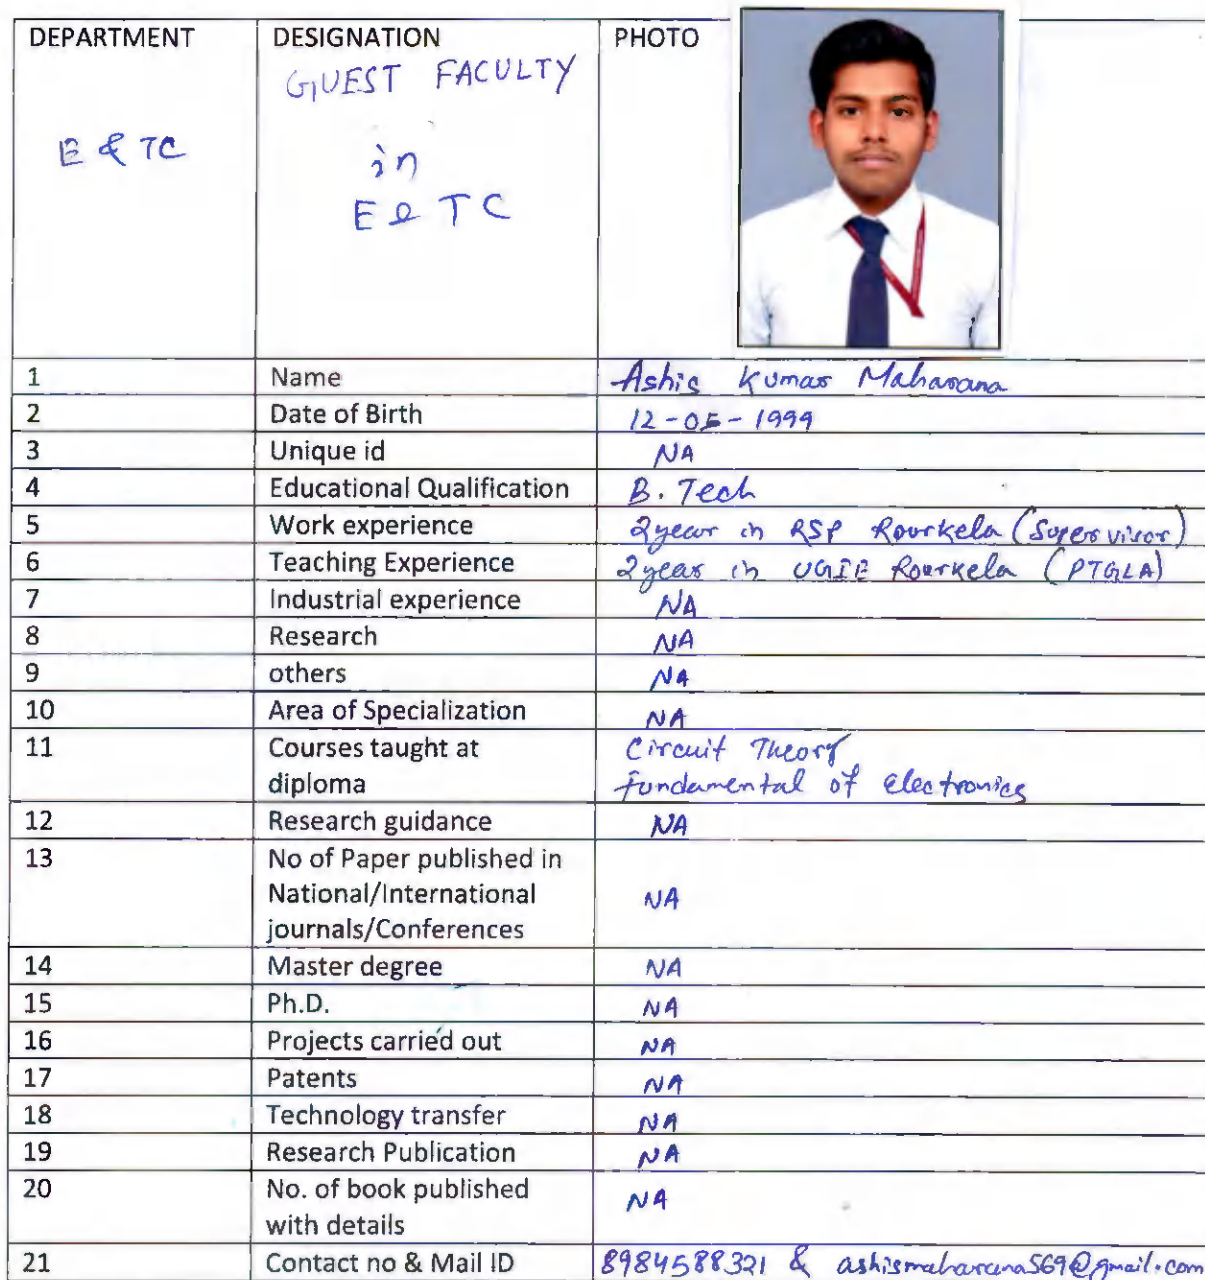 DEPARTMENT DESIGNATION PHOTO
GUEST FACULTY
E & TC in
E & TC
1 Name Ashis Kumar Maharana
2 Date of Birth 12-05-1999
3 Unique id NA
4 Educational Qualification B. Tech
5 Work experience 2year in RSP Rourkela (Supervisor)
6 Teaching Experience 2year in UGIE Rourkela (PTGLA)
7 Industrial experience NA
8 Research NA
9 others NA
10 Area of Specialization NA
11 Courses taught at Circuit Theory
diploma fundamental of electronics
12 Research guidance NA
13 No of Paper published in
National/International NA
journals/Conferences
14 Master degree NA
15 Ph.D. NA
16 Projects carried out NA
17 Patents NA
18 Technology transfer NA
19 Research Publication NA
20 No. of book published NA
with details
21 Contact no & Mail ID 8984588321 & ashismaharana569@gmail.com